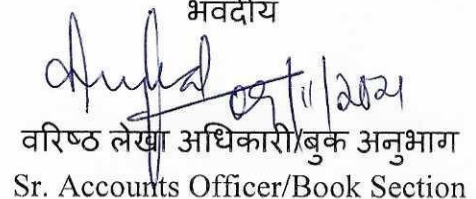 भवदीय
09/11/2021
वरिष्ठ लेखा अधिकारी/बुक अनुभाग
Sr. Accounts Officer/Book Section